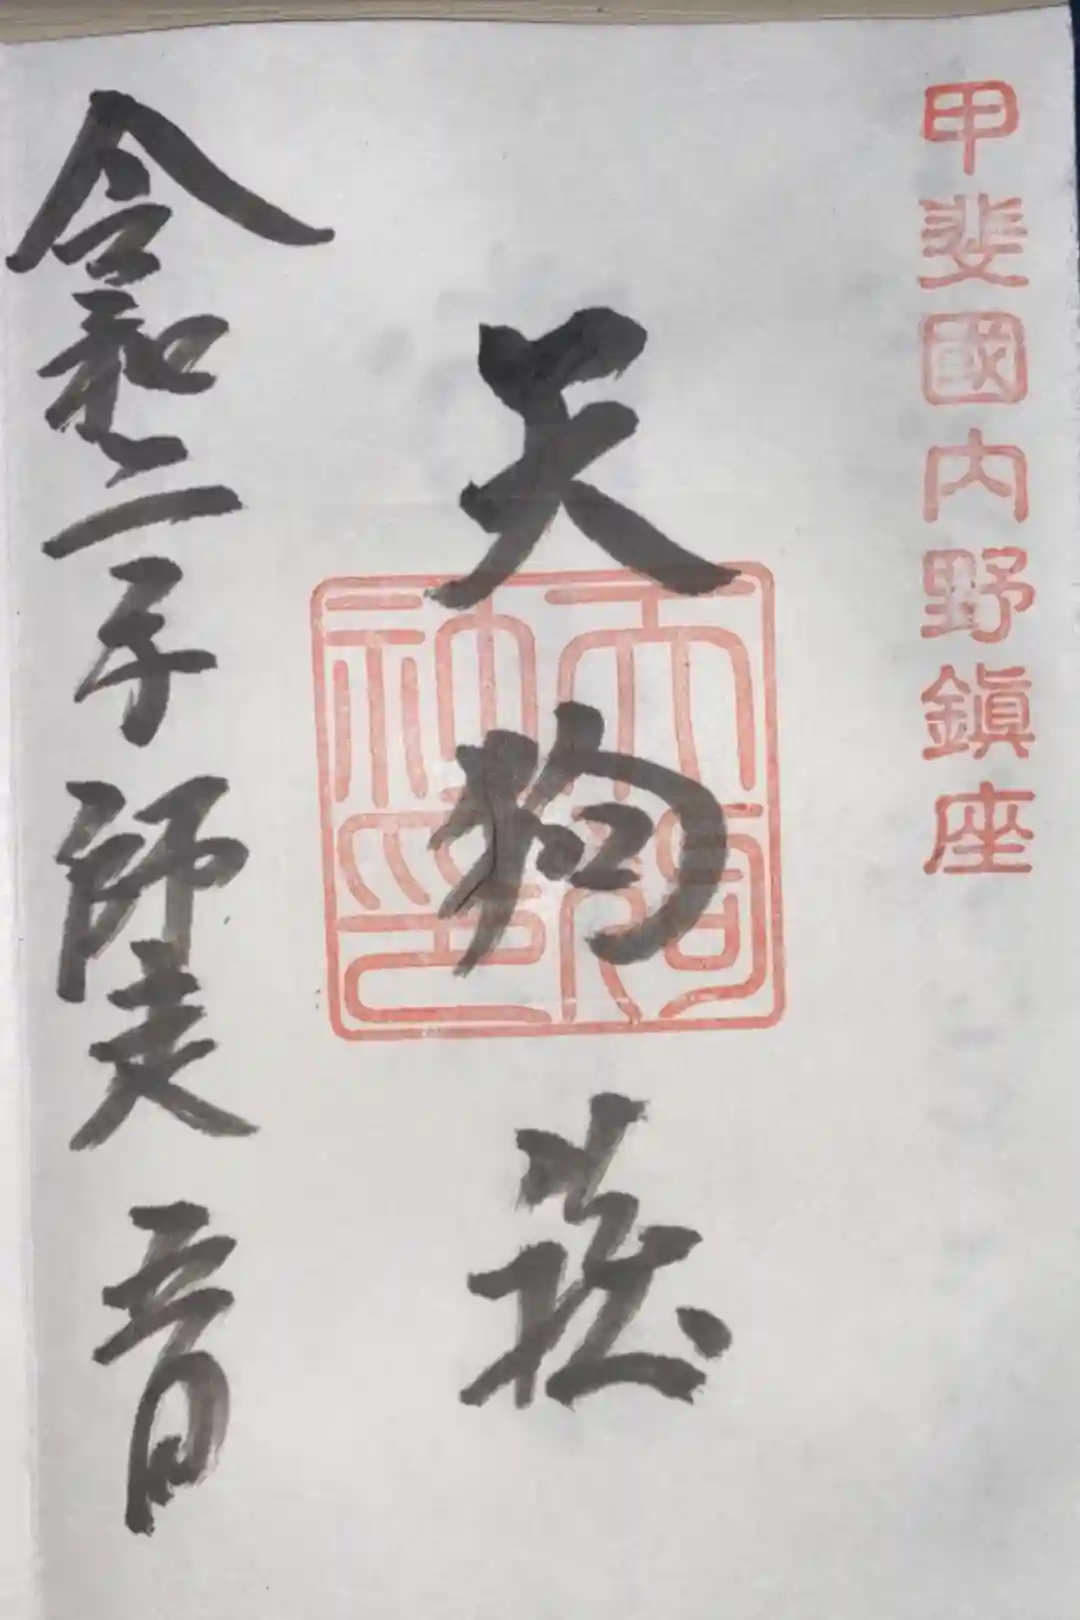 甲斐國内野鎭座
天狗
天狗
神印
令和二年師走五日